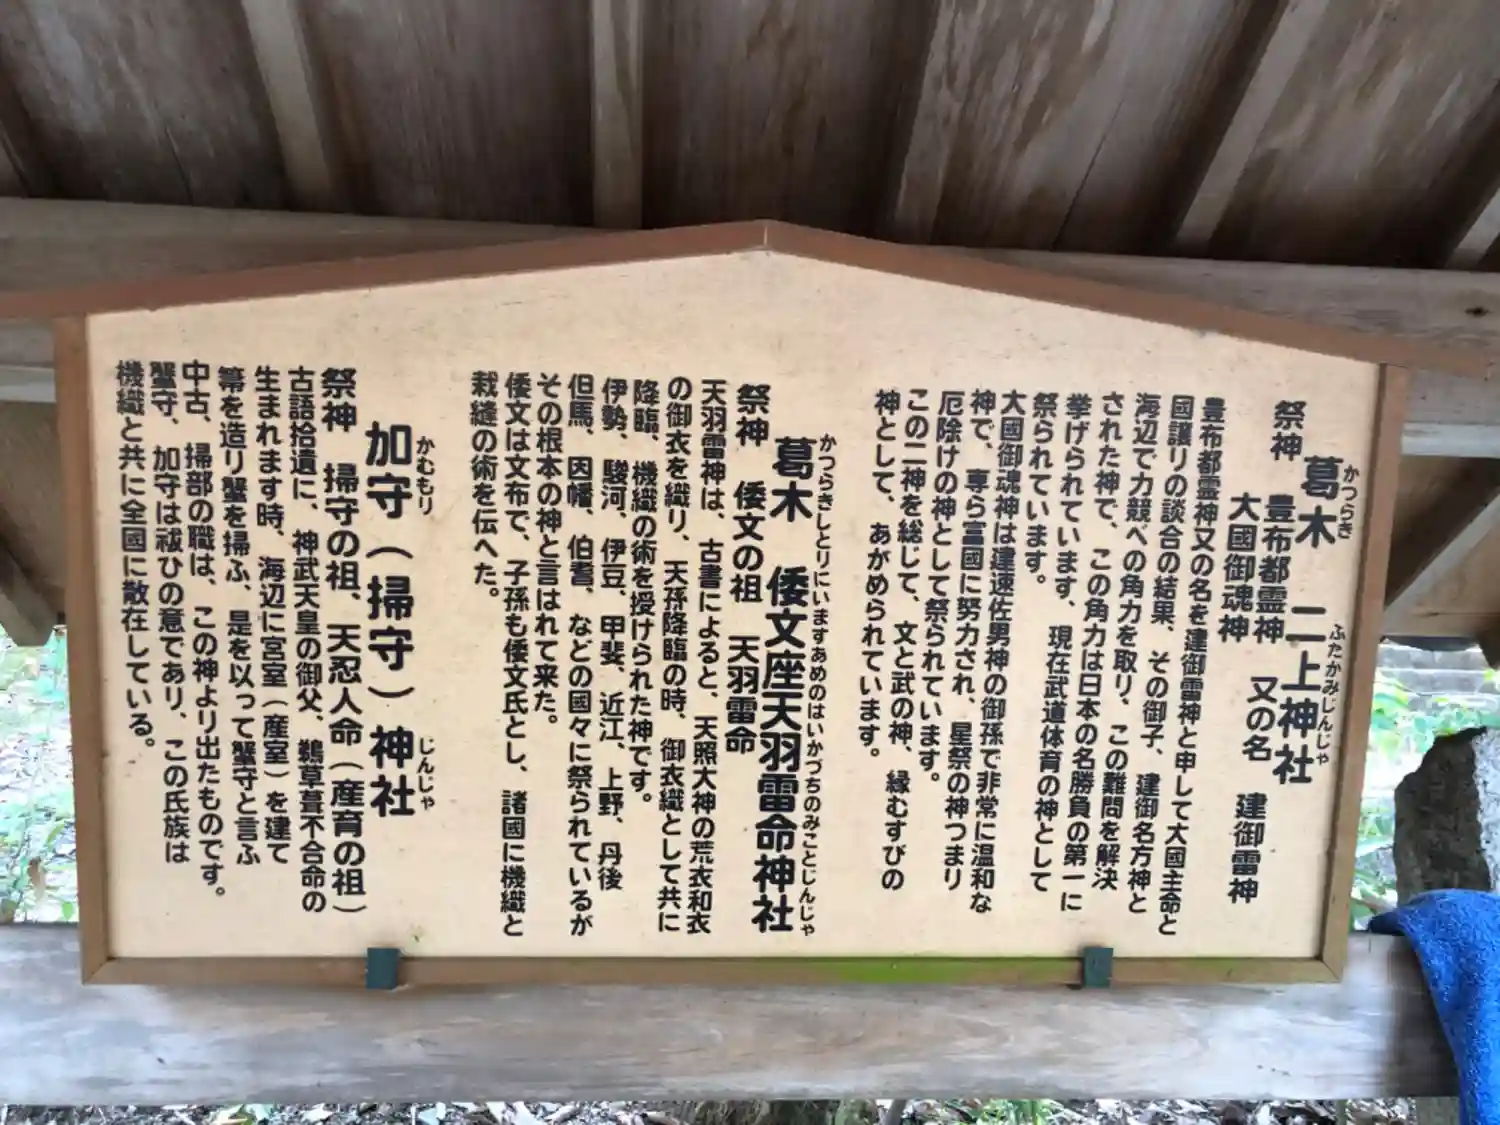 葛木 二上神社
かつらき ふたかみじんじゃ
祭神 豊布都霊神 又の名 建御雷神
大國御魂神
豊布都霊神又の名を建御雷神と申して大國主命と
國譲りの談合の結果、その御子、建御名方神と
海辺で力競べの角力を取り、この難問を解決
された神で、この角力は日本の名勝負の第一に
挙げられています、現在武道体育の神として
祭られています。
大國御魂神は建速佐男神の御孫で非常に温和な
神で、専ら富國に努力され、星祭の神つまり
厄除けの神として祭られています。
この二神を総じて、文と武の神、縁むすびの
神として、あがめられています。
葛木 倭文座天羽雷命神社
かつらきしとりにいますあめのはいかづちのみことじんじゃ
祭神 倭文の祖 天羽雷命
天羽雷神は、古書によると、天照大神の荒衣和衣
の御衣を織り、天孫降臨の時、御衣織として共に
降臨、機織の術を授けられた神です。
伊勢、駿河、伊豆、甲斐、近江、上野、丹後
但馬、因幡、伯耆、などの國々に祭られているが
その根本の神と言はれて来た。
倭文は文布で、子孫も倭文氏とし、諸國に機織と
裁縫の術を伝へた。
加守（掃守）神社
かむもり じんじゃ
祭神 掃守の祖、天忍人命（産育の祖）
古語拾遺に、神武天皇の御父、鵜草葺不合命の
生まれます時、海辺に宮室（産室）を建て
箒を造り蟹を掃ふ、是を以って蟹守と言ふ
中古、掃部の職は、この神より出たものです。
蟹守、加守は祓ひの意であり、この氏族は
機織と共に全國に散在している。